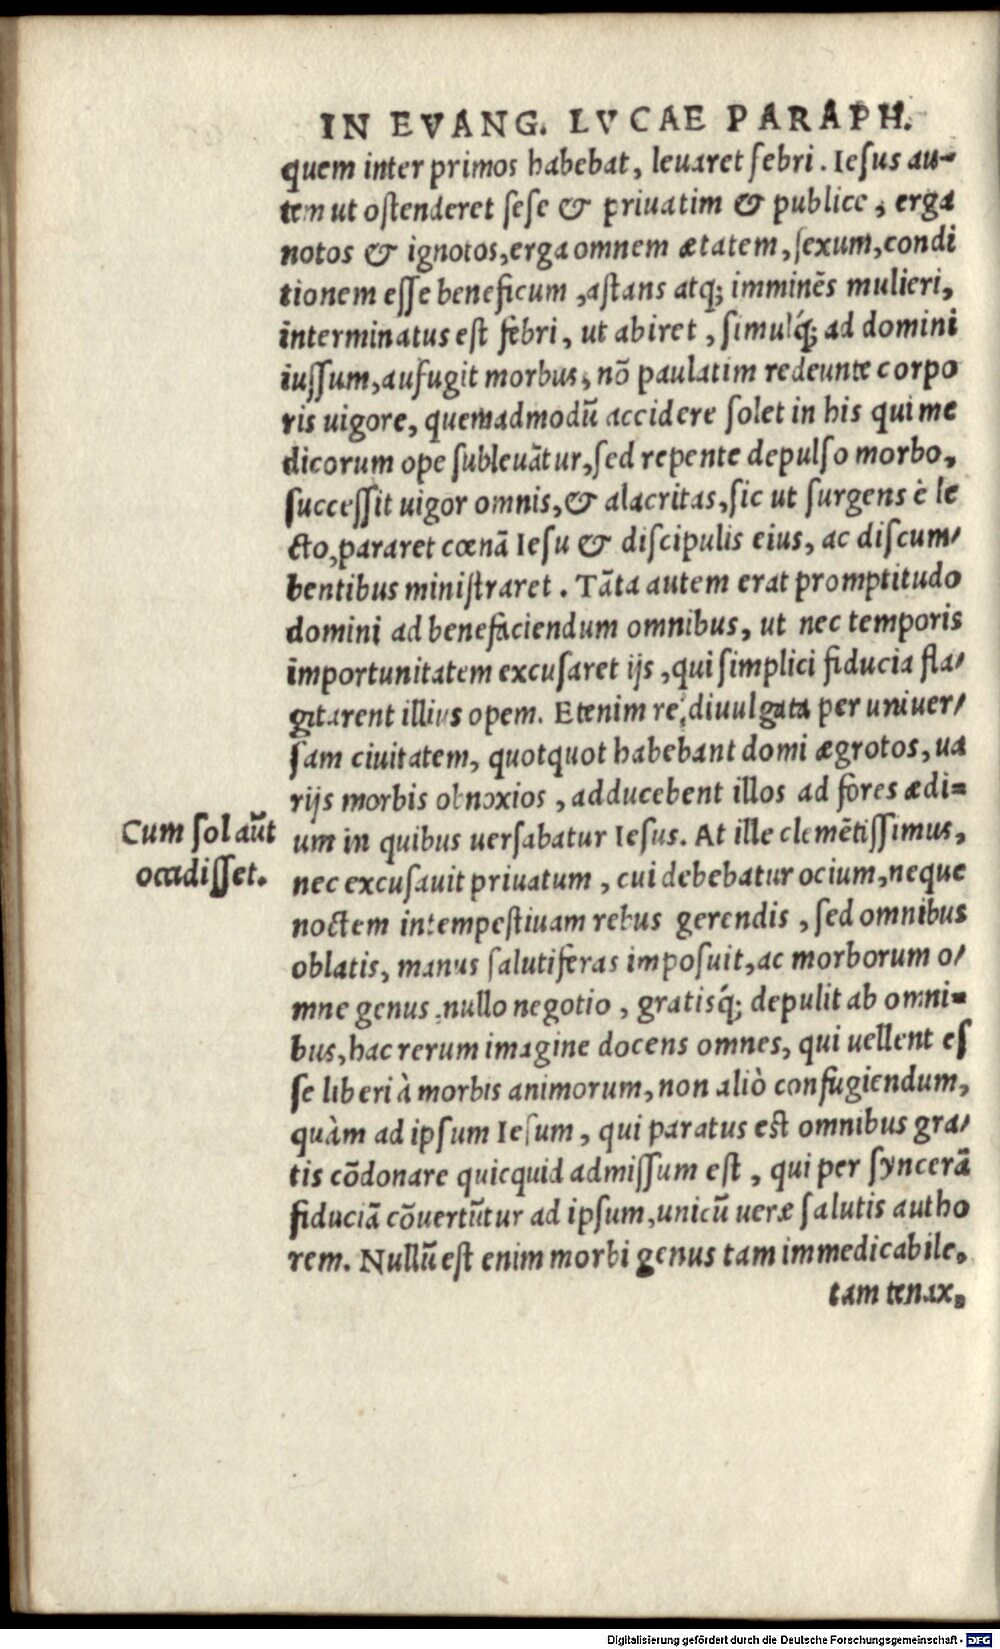 IN EVANG. LVCAE PARAPH.
quem inter primos habebat, leuaret febri. Iesus au-
tem ut ostenderet sese & priuatim & publice, erga
notos & ignotos, erga omnem ætatem, sexum, condi
tionem esse beneficum, astans atq; imminẽs mulieri,
interminatus est febri, ut abiret, simulq́; ad domini
iussum, aufugit morbus, nõ paulatim redeunte corpo
ris uigore, quemadmodũ accidere solet in his qui me
dicorum ope subleuãtur, sed repente depulso morbo,
successit uigor omnis, & alacritas, sic ut surgens è le
cto, pararet cœnã Iesu & discipulis eius, ac discum/
bentibus ministraret. Tãta autem erat promptitudo
domini ad benefaciendum omnibus, ut nec temporis
importunitatem excusaret ijs, qui simplici fiducia fla/
gitarent illius opem. Etenim re, diuulgata per uniuer/
sam ciuitatem, quotquot habebant domi ægrotos, ua
rijs morbis obnoxios, adducebent illos ad fores ædi=
Cum sol aũt
occidisset.
um in quibus uersabatur Iesus. At ille clemẽtissimus,
nec excusauit priuatum, cui debebatur ocium, neque
noctem intempestiuam rebus gerendis, sed omnibus
oblatis, manus salutiferas imposuit, ac morborum o/
mne genus, nullo negotio, gratisq́; depulit ab omni=
bus, hac rerum imagine docens omnes, qui uellent es
se liberi à morbis animorum, non aliò confugiendum,
quàm ad ipsum Iesum, qui paratus est omnibus gra/
tis cõdonare quicquid admissum est, qui per syncerã
fiduciã cõuertũtur ad ipsum, unicũ ueræ salutis autho
rem. Nullũ est enim morbi genus tam immedicabile,
tam tenax,
Digitalisierung gefördert durch die Deutsche Forschungsgemeinschaft - DFG